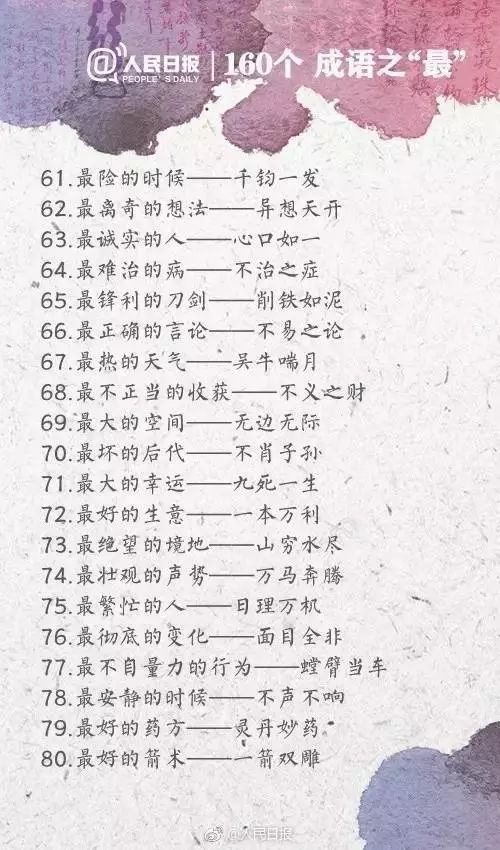 @人民日报 PEOPLE'S DAILY | 160个 成语之“最”
61.最险的时候——千钧一发
62.最离奇的想法——异想天开
63.最诚实的人——心口如一
64.最难治的病——不治之症
65.最锋利的刀剑——削铁如泥
66.最正确的言论——不易之论
67.最热的天气——吴牛喘月
68.最不正当的收获——不义之财
69.最大的空间——无边无际
70.最坏的后代——不肖子孙
71.最大的幸运——九死一生
72.最好的生意——一本万利
73.最绝望的境地——山穷水尽
74.最壮观的声势——万马奔腾
75.最繁忙的人——日理万机
76.最彻底的变化——面目全非
77.最不自量力的行为——螳臂当车
78.最安静的时候——不声不响
79.最好的药方——灵丹妙药
80.最好的箭术——一箭双雕
@人民日报